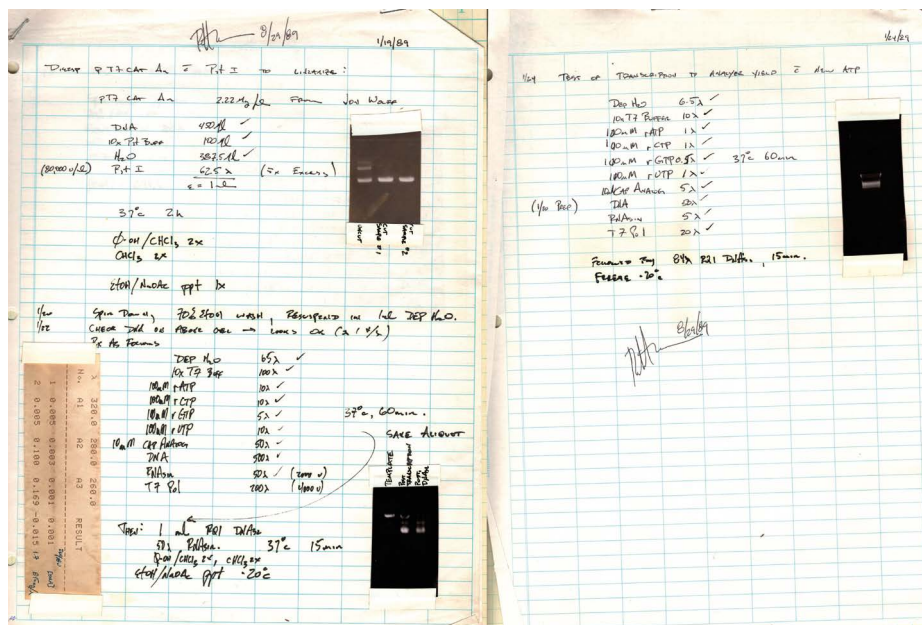 8/29/89
1/19/89
Digest pT7 CAT An c̄ Pst I to linearize:
pT7 CAT An 2.22 µg/µl From Jon Wolff
DNA 450λ ✓
10x Pst Buff 100λ ✓
H₂O 387.5λ ✓
(80,000 u/l) Pst I 62.5λ (5x Excess)
ε = 1 ml
37°c 2h
Ø-OH/CHCl₃ 2x
CHCl₃ 2x
EtOH/NaOAc ppt 1x
UNCUT
CUT SAMPLE #1
CUT SAMPLE #2
1/20 Spin Down, 70% EtOH wash, Resuspend in 1ml DEP H₂O.
1/22 Check DNA on Above Gel → Looks OK
Rx As Follows
DEP H₂O 65λ ✓
10x T7 Buff 100λ ✓
100mM rATP 10λ ✓
100mM rCTP 10λ ✓
100mM rGTP 5λ ✓
100mM rUTP 10λ ✓
10mM CAP Analog 50λ ✓
DNA 500λ ✓
RNAsin 50λ ✓ (2000 u)
T7 Pol 200λ (4000 u)
37°c, 60min.
SAVE ALIQUOT
TEMPLATE
POST TRANSCRIPTION
POST DNAse
Then: 1 ml RQ1 DNAse
50λ RNAsin. 37°c 15min
Ø-OH/CHCl₃ 2x, CHCl₃ 2x
EtOH/NaOAc ppt -20°c
λ 320.0 280.0 260.0
No. A1 A2 A3 RESULT
1 0.005 0.003 0.001 0.001
2 0.005 0.100 0.169 -0.015
1/24 Test of Transcription to Analyze yield c̄ New ATP
DEP H₂O 6.5λ ✓
10x T7 Buffer 10λ ✓
100mM rATP 1λ ✓
100mM rCTP 1λ ✓
100mM rGTP 0.5λ ✓ 37°c 60min
100mM rUTP 1λ ✓
10mM CAP Analog 5λ ✓
(1/20 Prep) DNA 50λ ✓
RNAsin 5λ ✓
T7 Pol 20λ ✓
Followed By 84λ RQ1 DNAse, 15min.
Freeze -20°c
8/29/89